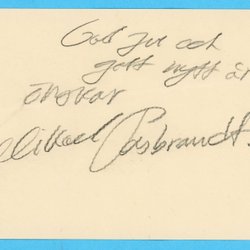 God Jul och
gott nytt år
önskar
Mikael Persbrandt